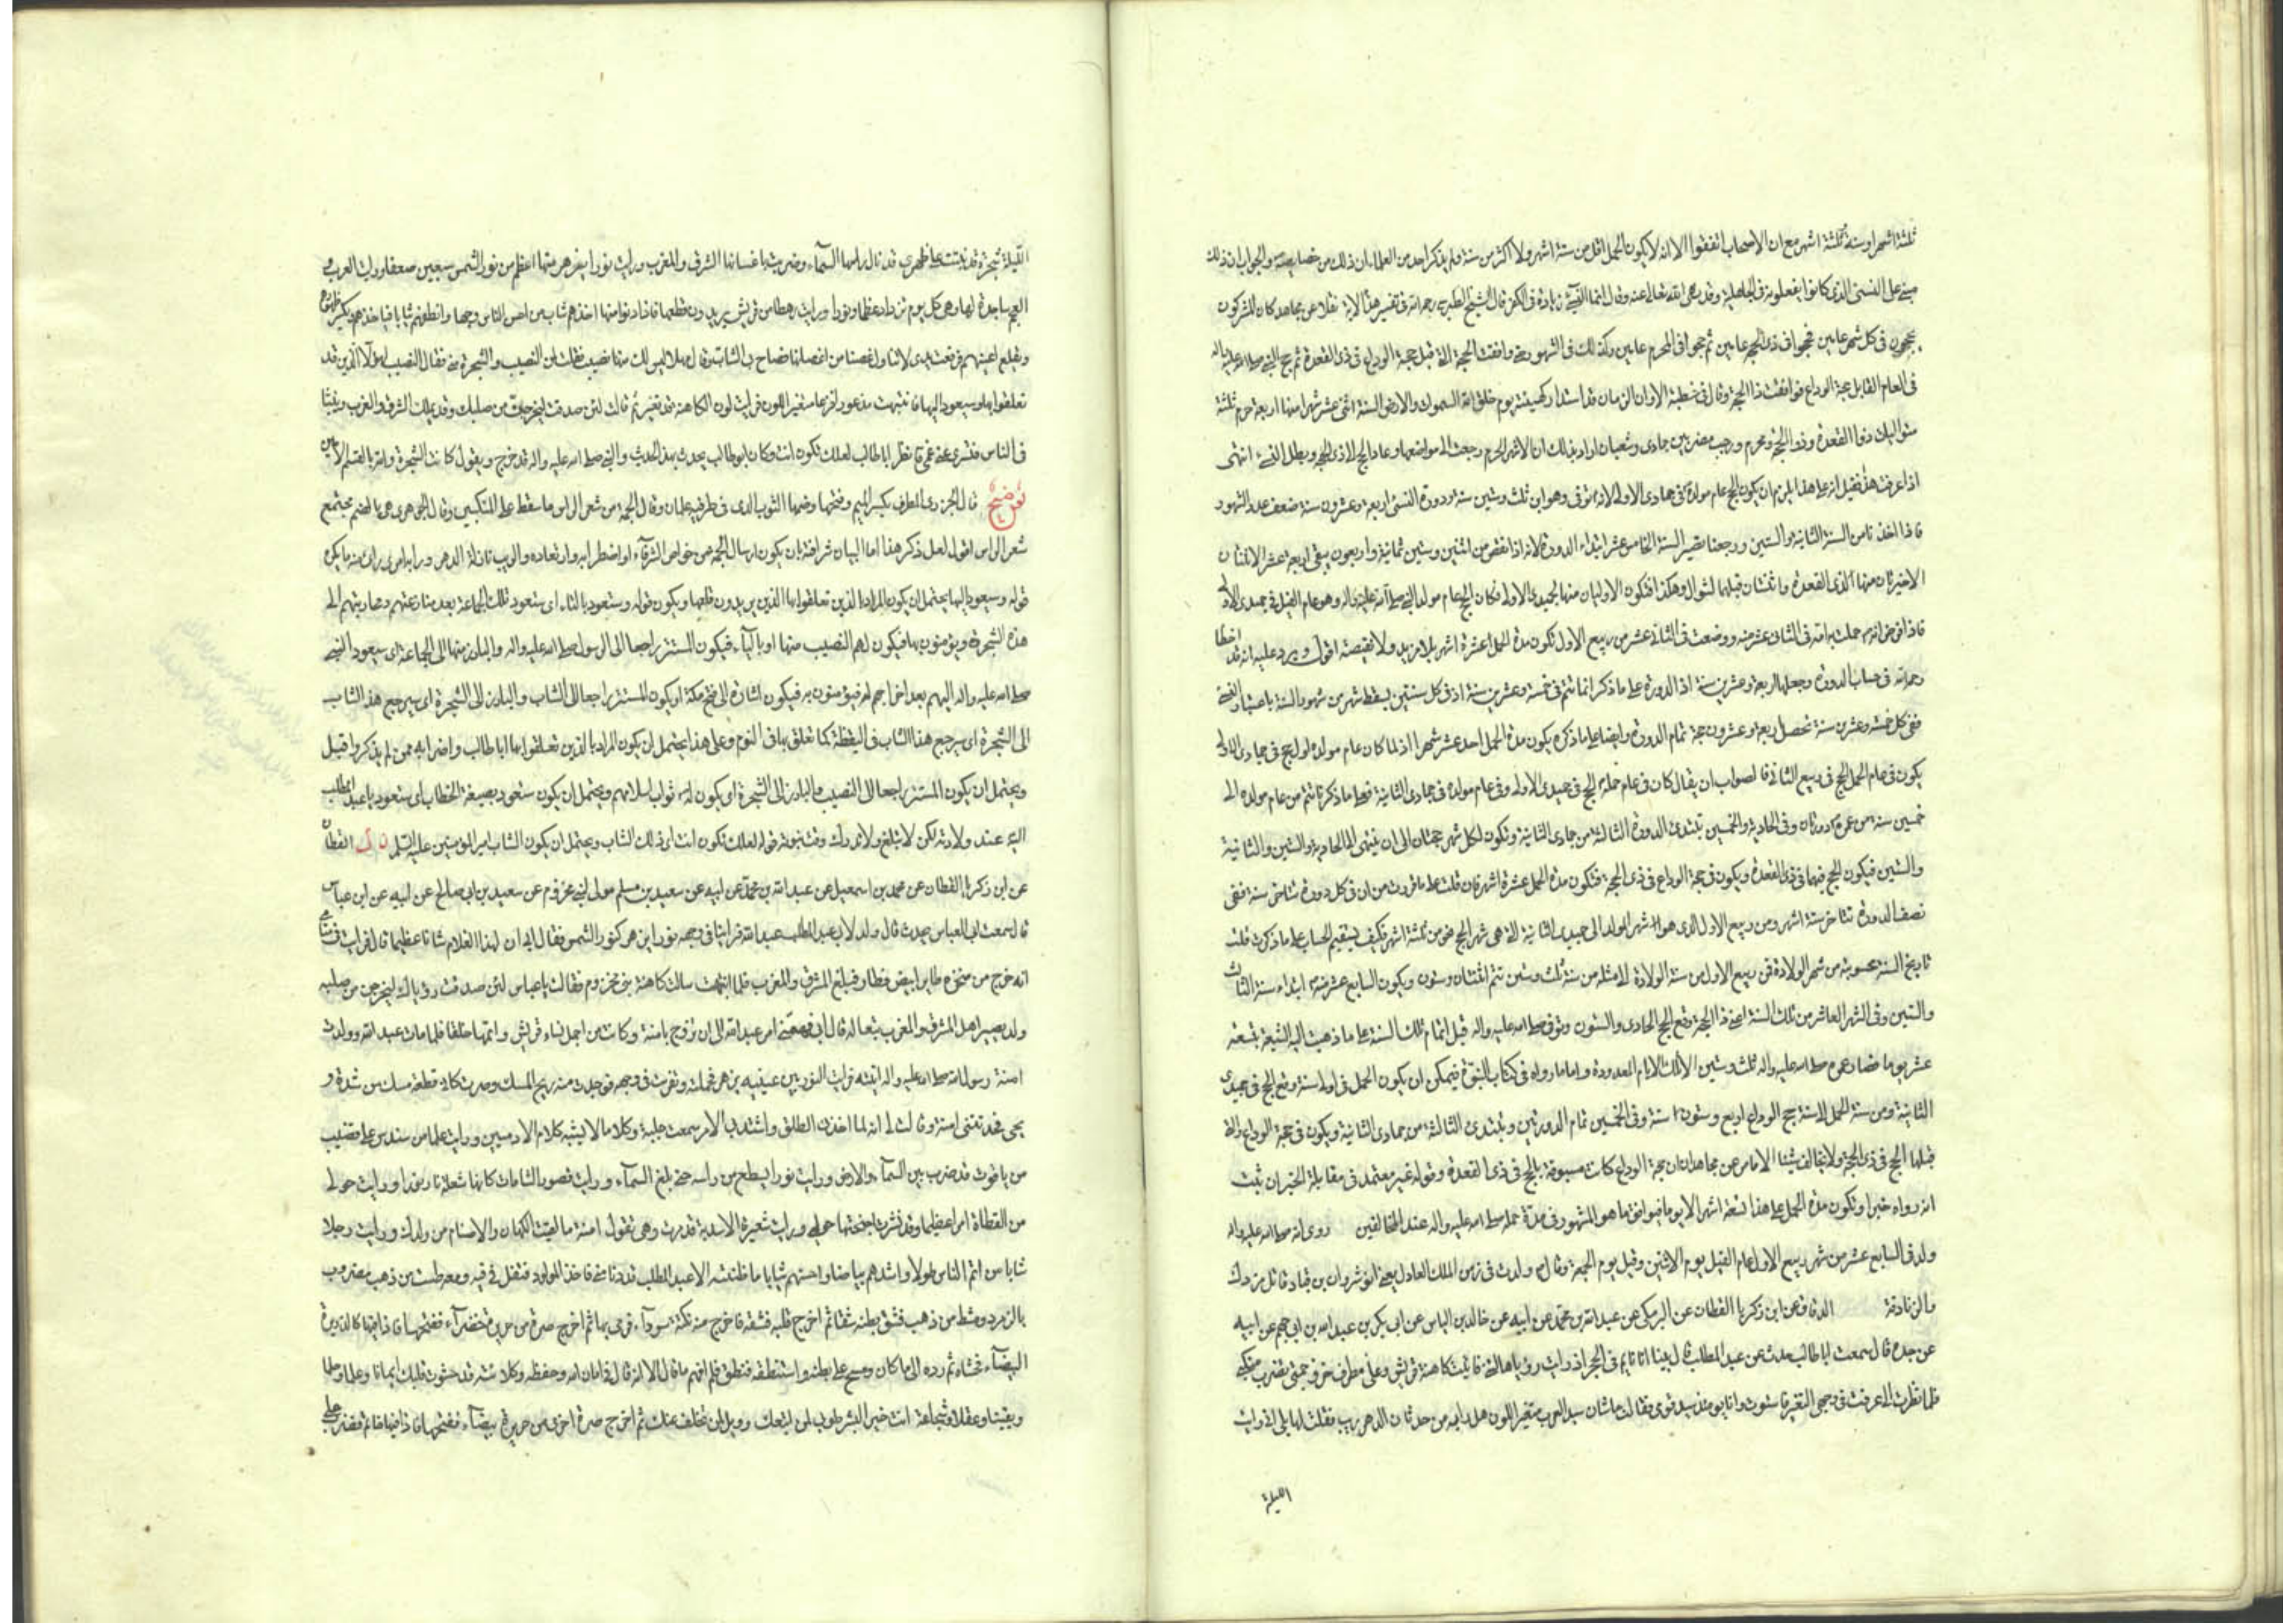 ثلثة اشهر او سنة وثلثة اشهر مع ان الاصحاب اتفقوا الا انه لا يكون الحمل اقل من ستة اشهر ولا اكثر من سنة ولم يذكر احد من العلماء ان ذلك من خصايصه والجواب ان ذلك
مبني على النسئ الذي كانوا يفعلونه في الجاهلية وقد نهى الله تعالى عنه وقال انما النسئ زيادة في الكفر قال الشيخ الطبرسي رحمه الله في تفسير هذه الاية نقلا عن مجاهد كان المشركون
يحجون في كل شهر عامين فحجوا في ذي الحجه عامين ثم حجوا في المحرم عامين وكذلك في الشهور حتى وافقت الحجة التي قبل حجة الوداع في ذي القعدة ثم حج النبي صلى الله عليه واله
في العام القابل حجة الوداع فوافقت ذا الحجة وقال في خطبته الا وان الزمان قد استدار كهيئته يوم خلق الله السموات والارض السنة اثنى عشر شهرا منها اربعة حرم ثلثة
متواليات ذو القعدة وذو الحجة ومحرم ورجب مضر بين جمادى وشعبان اراد بذلك ان الاشهر الحرم رجعت الى مواضعها وعاد الحج الى ذي الحجه وبطل النسئ انتهى
اذا عرفت هذا فقيل انه على هذا يلزم ان يكون الحج عام مولده في جمادى الاولى لانه توفى وهو ابن ثلث وستين سنة ودورة النسئ اربعة وعشرون سنة ضعف عدد الشهور
فاذا اخذنا من السنة الثانية والستين ورجعنا تصير السنة الخامس عشر ابتداء الدورة لانه اذا نقص من اثنين وستين ثمانية واربعون يبقى اربعة عشر الاثنتان
الاخيرتان منها لذي القعدة واثنتان قبلها لشوال وهكذا فتكون الاوليان منها لجمادى الاولى فكان الحج عام مولد النبي صلى الله عليه واله وهو عام الفيل في جمادى الاولى
فاذا فرض انه حملت به امه في الثاني عشر منه ووضعت في الثاني عشر من ربيع الاول تكون مدة الحمل عشرة اشهر بلا مزيد ولا نقيصة اقول ويرد عليه انه قد اخطأ
رحمه الله في حساب الدورة وجعلها اربعة وعشرين سنة اذ الدورة على ما ذكر انما تتم في خمسة وعشرين سنة اذ في كل سنتين يسقط شهر من شهور السنة باعتبار النسئ
ففي كل خمسة وعشرين سنة تحصل اربعة وعشرون حجة تمام الدورة وايضا على ما ذكره يكون مدة الحمل احد عشر شهرا اذ لما كان عام مولده اول حج في جمادى الاولى
يكون في عام الحمل الحج في ربيع الثاني فالصواب ان يقال كان في عام حمله الحج في جمادى الاولى وفي عام مولده في جمادى الثانية فعلى ما ذكرنا تتم من عام مولده الى
خمسين سنة من عمره دورتان وفي الحادية والخمسين تبتدئ الدورة الثالثة من جمادى الثانية وتكون لكل شهر حجتان الى ان ينتهي الى الحادية والستين والثانية
والستين فيكون الحج فيهما في ذي القعدة ويكون في حجة الوداع في ذي الحجة فتكون مدة الحمل عشرة اشهر فان قلت على ما قررت من ان في كل دورة تتاخر سنة ففي
نصف الدورة تتاخر ستة اشهر ومن ربيع الاول الذي هو شهر المولد الى جمادى الثانية التي هي شهر الحج نحو من ثلثة اشهر فكيف يستقيم الحساب على ما ذكرت قلت
تاريخ السنة محسوبة من شهر الولادة فمن ربيع الاول من سنة الولادة الى مثله من سنة ثلث وستين تتم اثنتان وستون ويكون السابع عشر منه ابتداء سنة الثالث
والستين وفي الشهر العاشر من تلك السنة اعني ذا الحجة وقع الحج الحادي والستون وتوفى صلى الله عليه واله قبل اتمام تلك السنة على ما ذهبت اليه الشيعة بتسعة
عشر يوما فصار عمره صلى الله عليه واله ثلث وستين الا تلك الايام المعدودة واما ما رواه في كتاب النبوة فيمكن ان يكون الحمل في اول سنة وقع الحج في جمادى
الثانية ومن سنة الحمل الى سنة حج الوداع اربع وستون سنة وفي الخمسين تمام الدورتين وتبتدئ الثالثة من جمادى الثانية ويكون في حجة الوداع والتي
قبلها الحج في ذي الحجة ولا يخالف شيئا الا ما مر عن مجاهد ان حجة الوداع كانت مسبوقة بالحج في ذي القعدة وقوله غير معتمد في مقابلة الخبر ان ثبت
انه رواه خبرا وتكون مدة الحمل على هذا تسعة اشهر الا يوما فيوافق ما هو المشهور في مدة حمله صلى الله عليه واله عند المخالفين روى انه صلى الله عليه واله
ولد في السابع عشر من شهر ربيع الاول عام الفيل يوم الاثنين وقيل يوم الجمعة وقال ولدت في زمن الملك العادل يعني انوشروان بن قباد قاتل مزدك
والزنادقة الدقاق عن ابن زكريا القطان عن البرمكي عن عبد الله بن محمد عن ابيه عن خالد بن الياس عن ابي بكر بن عبد الله بن ابي جهم عن ابيه
عن جده قال سمعت ابا طالب حدث عن عبد المطلب قال بينا انا نايم في الحجر اذ رايت رؤيا هالتني فاتيت كاهنة قريش وعلي مطرف خز وجمتي تضرب منكبي
فلما نظرت الي عرفت في وجهي التغير فاستوت وانا يومئذ سيد قومي فقالت ما شان سيد العرب متغير اللون هل رابه من حدثان الدهر ريب فقلت لها بلى اني رايت
الليلة
الليلة شجرة قد نبتت على ظهري قد نال راسها السماء وضربت باغصانها الشرق والغرب ورايت نورا يزهر منها اعظم من نور الشمس سبعين ضعفا ورايت العرب و
العجم ساجدة لها وهي كل يوم تزداد عظما ونورا ورايت رهطا من قريش يريدون قطعها فاذا دنوا منها اخذهم شاب من احسن الناس وجها وانظفهم ثيابا فياخذهم ويكسر ظهورهم
ويقلع اعينهم فرفعت يدي لاتناول غصنا من اغصانها فصاح بي الشاب وقال مهلا ليس لك منها نصيب فقلت لمن النصيب والشجرة مني فقال النصيب لهؤلاء الذين قد
تعلقوا بها وسيعود اليها فانتبهت مذعورا فزعا متغير اللون فرايت لون الكاهنة قد تغير ثم قالت لئن صدقت ليخرجن من صلبك ولد يملك الشرق والغرب وينبأ
في الناس فتسرى عني غمي فانظر ابا طالب لعلك تكون انت وكان ابو طالب يحدث بهذا الحديث والنبي صلى الله عليه واله قد خرج ويقول كانت الشجرة والله ابا القسم الامين
توضيح قال الجزري المطرف بكسر الميم وفتحها وضمها الثوب الذي في طرفيه علمان وقال الجمة من شعر الراس ما سقط على المنكبين وقال الجوهري هي بالضم مجتمع
شعر الراس اقول لعل ذكر هذا اما لبيان شرافته بان يكون ارسال الجمة من خواص الشرفاء او لاضطرابه وارتعاده والريب نازلة الدهر ورابه امر راى منه ما يكره
قوله وسيعود اليها يحتمل ان يكون المراد بالذين تعلقوا بها الذين يريدون قلعها ويكون قوله وستعود بالتاء اى ستعود تلك الجماعة بعد منازعتهم ومحاربتهم الى
هذه الشجرة ويؤمنون بها فيكون لهم النصيب منها او بالياء فيكون المستتر راجعا الى الرسول صلى الله عليه واله والبارز منها الى الجماعة اى سيعود النبي
صلى الله عليه واله اليهم بعد اخراجهم له فيؤمنون به فيكون اشارة الى فتح مكة او يكون المستتر راجعا الى الشاب والبارز الى الشجرة اى سيرجع هذا الشاب
الى الشجرة اى سيرجع هذا الشاب في اليقظة كما تعلق بها في النوم وعلى هذا يحتمل ان يكون المراد بالذين تعلقوا بها ابا طالب واضرابه ممن لم يذكروا قبل
ويحتمل ان يكون المستتر راجعا الى النصيب والبارز الى الشجرة اى يكون له ثواب اسلامهم ويحتمل ان يكون ستعود بصيغة الخطاب اى ستعود يا عبد المطلب
اليه عند ولادته لكن لا تبلغ ولا تدرك وقت نبوته قوله لعلك تكون انت اى ذلك الشاب ويحتمل ان يكون الشاب امير المؤمنين عليه السلم ن ك القطان
عن ابن زكريا القطان عن محمد بن اسمعيل عن عبد الله بن محمد عن ابيه عن سعيد بن مسلم مولى لبني مخزوم عن سعيد بن ابي صالح عن ابيه عن ابن عباس
قال سمعت ابي العباس يحدث قال ولد لابي عبد المطلب عبد الله فراينا في وجهه نورا يزهر كنور الشمس فقال ابي ان لهذا الغلام شانا عظيما قال فرايت في منامي
انه خرج من منخره طاير ابيض فطار فبلغ المشرق والمغرب فلما انتبهت سالت كاهنة بني مخزوم فقالت يا عباس لئن صدقت رؤياك ليخرجن من صلبه
ولد يصير اهل المشرق والمغرب تبعا له قال ابي فهمني امر عبد الله الى ان تزوج بامنة وكانت من اجمل نساء قريش واتمها خلقا فلما مات عبد الله وولدت
امنة رسول الله صلى الله عليه واله اتيته فرايت النور بين عينيه يزهر فحملته وتفرست في وجهه فوجدت منه ريح المسك وصرت كاني قطعة مسك من شدة ر
يحي فحدثتني امنة وقالت لي انه لما اخذني الطلق واشتد بي الامر سمعت جلبة وكلاما لا يشبه كلام الادميين ورايت علما من سندس على قضيب
من ياقوت قد ضرب بين السماء والارض ورايت نورا يسطع من راسه حتى بلغ السماء ورايت قصور الشامات كانها شعلة نار نورا ورايت حولي
من القطاة امرا عظيما وقد نشرت اجنحتها حولي ورايت شعيرة الاسدية قد مرت وهي تقول امنة ما لقيت الكهان والاصنام من ولدك ورايت رجلا
شابا من اتم الناس طولا واشدهم بياضا واحسنهم ثيابا ما ظننته الا عبد المطلب قد دنا مني فاخذ المولود فتفل في فيه ومعه طست من ذهب مضروب
بالزمرد ومشط من ذهب فشق بطنه شقا ثم اخرج قلبه فشقه فاخرج منه نكتة سوداء فرمى بها ثم اخرج صرة من حريرة خضراء ففتحها فاذا فيها كالذريرة
البيضاء فحشاه ثم رده الى ما كان ومسح على بطنه واستنطقه فنطق فلم افهم ما قال الا انه قال في امان الله وحفظه وكلائته قد حشوت قلبك ايمانا وعلما وحلما
ويقينا وعقلا وشجاعة انت خير البشر طوبى لمن اتبعك وويل لمن تخلف عنك ثم اخرج صرة اخرى من حريرة بيضاء ففتحها فاذا فيها خاتم فضرب على